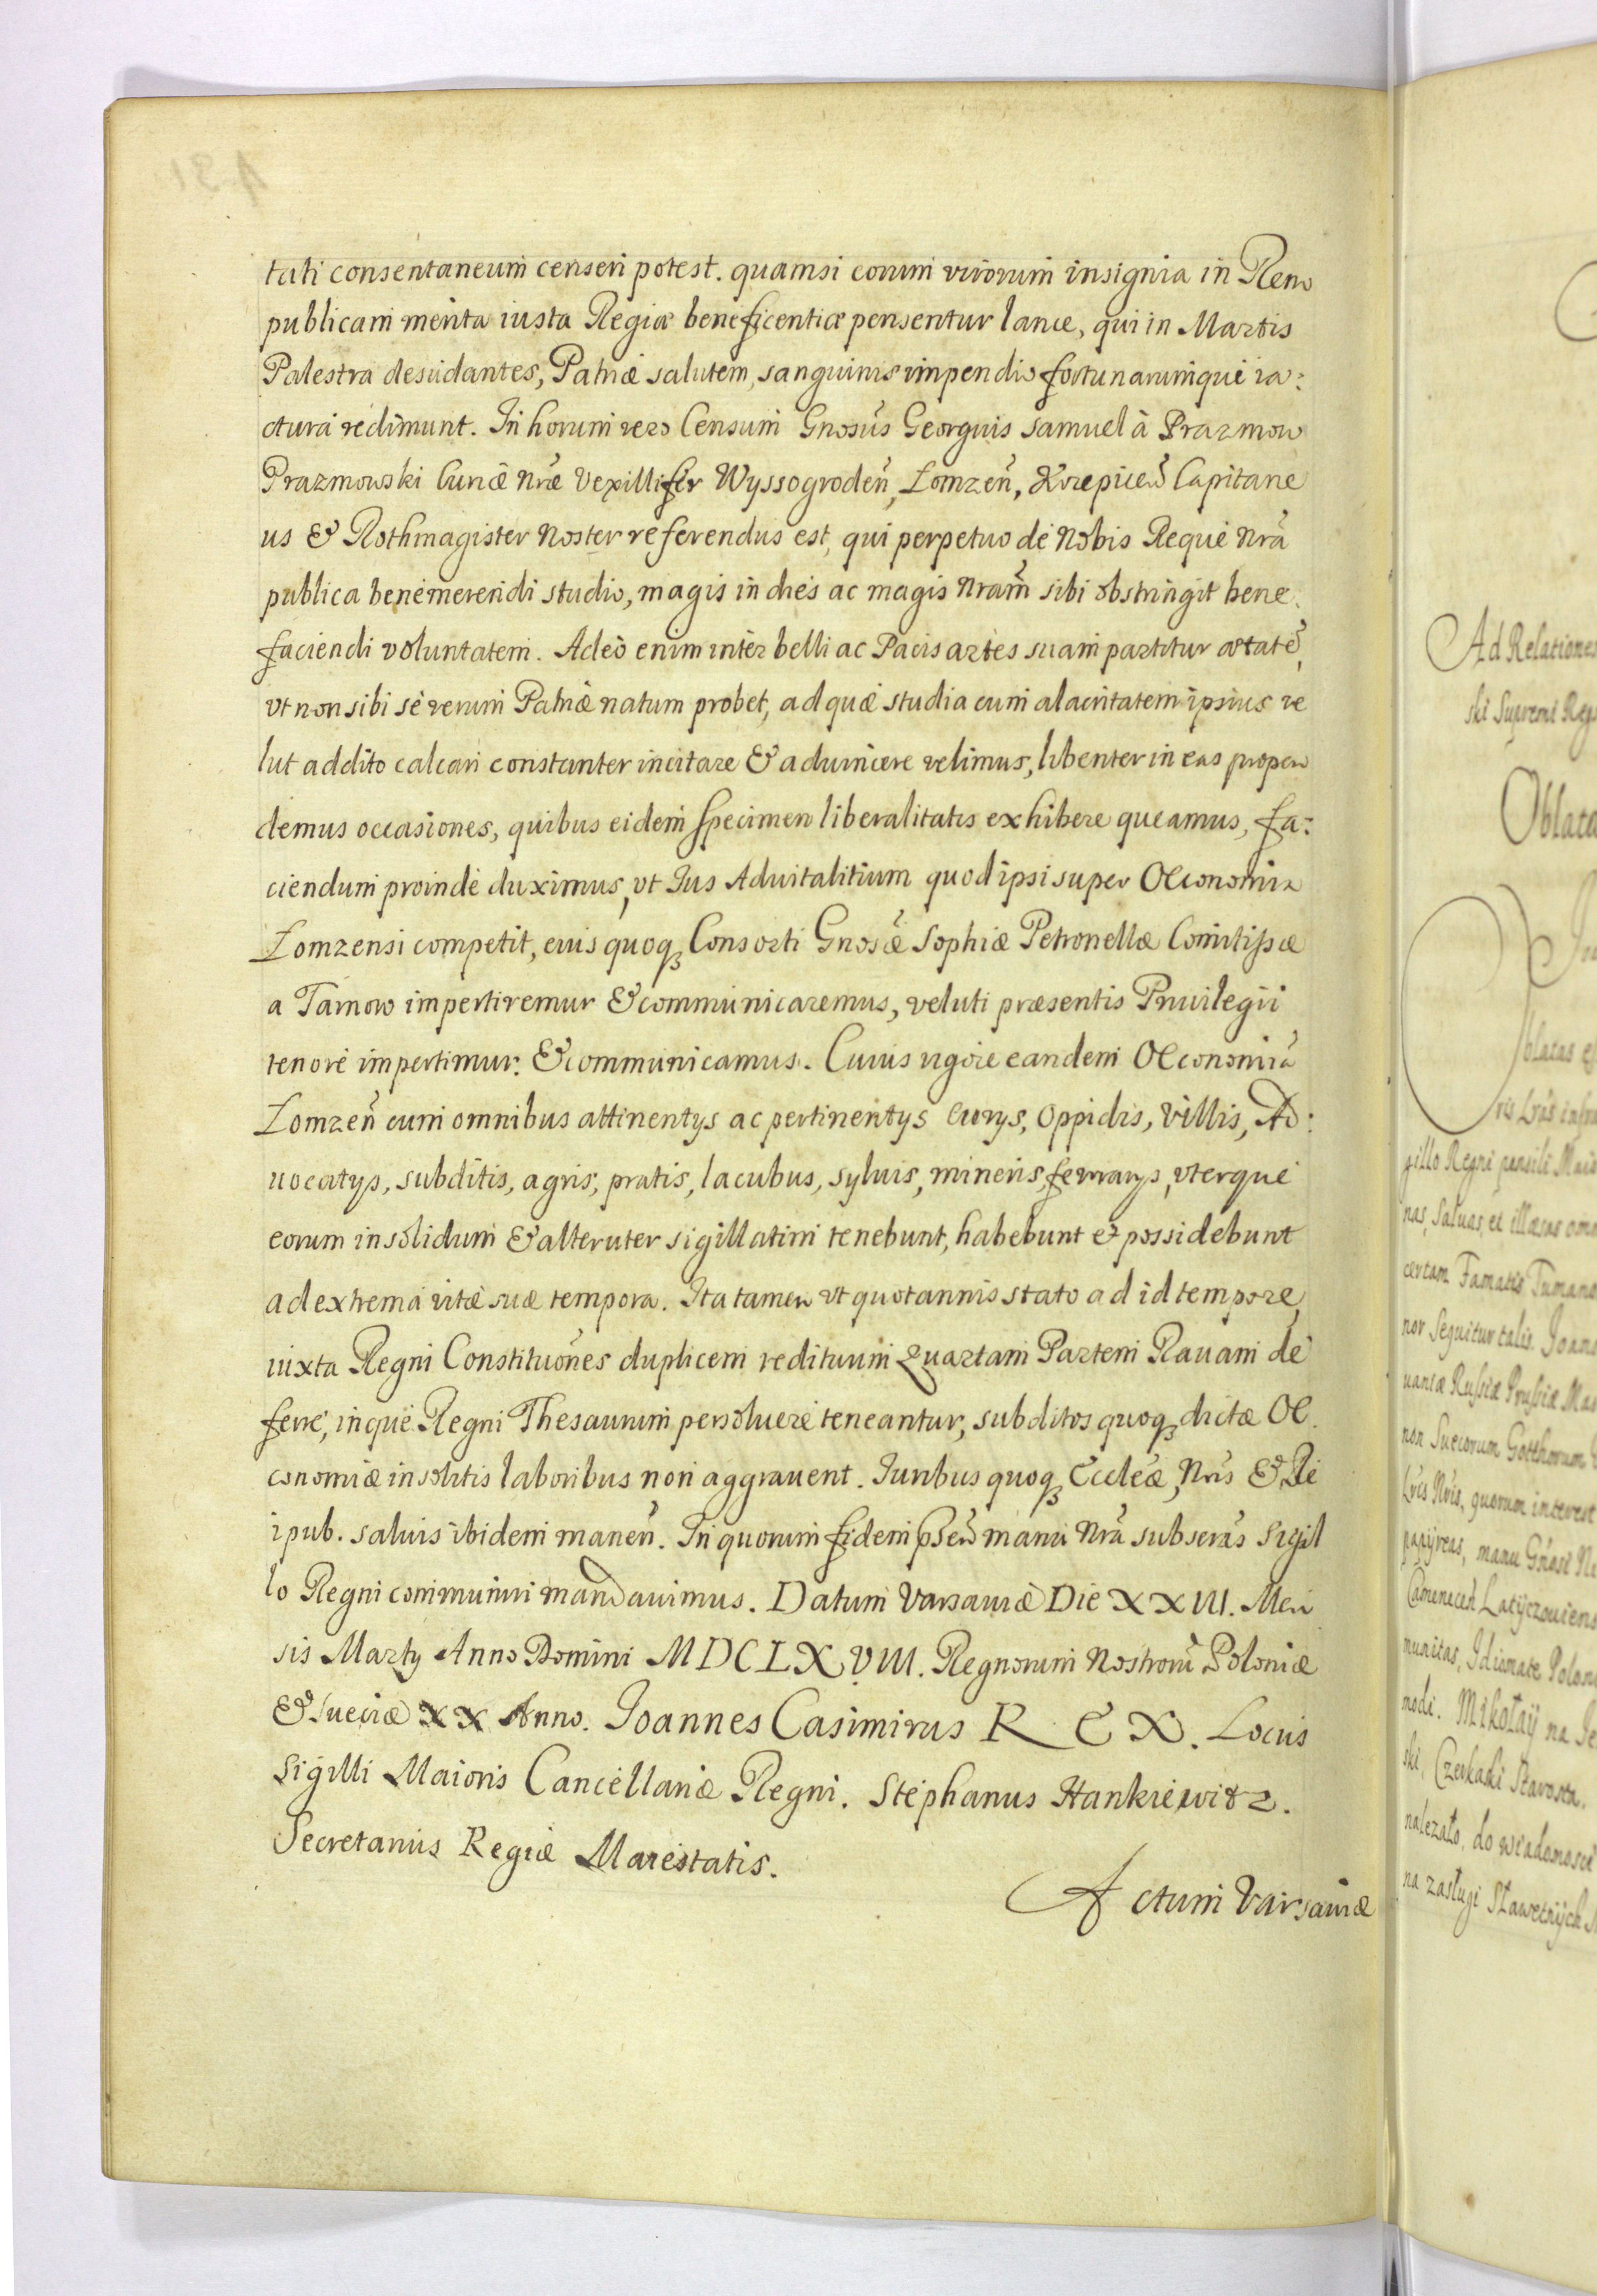 tati consentaneum censeri potest. quamsi eorum virorum insignia in Rem
publicam merita iusta Regiæ beneficentiæ pensentur lance, qui in Martis
Palestra desudantes, Patriæ salutem, sanguinis impendio fortunarumque ia:
ctura redimunt. In horum vero Censum Gnosus Georgius Samuel à Prazmow
Prazmowski Curiæ Nræ Vexillifer Wyssogroden, Łomzen, Korepicen Capitane
us & Rothmagister Noster referendus est, qui perpetuo de Nobis Reque Nra
publica benemerendi studio, magis in dies ac magis Nram sibi obstringit bene
faciendi voluntatem. Adeò enim inter belli ac Pacis artes suam partitur ætatē,
vt non sibi se verum Patriæ natum probet, ad quæ studia cum alacritatem ipsius ve
lut addito calcari constanter incitare & aduincere velimus, libenter in eas propen
demus occasiones, quibus eidem specimen liberalitatis exhibere queamus, fa:
ciendum proinde duximus, vt Jus Aduitalitium quod ipsi super Oeconomia
Łomzensi competit, eius quoq Consorti Gnosæ Sophiæ Petronellæ Comitissæ
a Tarnow impertiremur & communicaremus, veluti præsentis Priuilegii
tenore impertimur: & communicamus. Cuius vigore eandem Oeconomiā
Łomzen cum omnibus attinentys ac pertinentys Curys, Oppidis, Villis, Ad:
uocatys, subditis, agris, pratis, lacubus, syluis, mineris, ferrarys, vterque
eorum insolidum & alteruter sigillatim tenebunt, habebunt et possidebunt
ad extrema vitæ suæ tempora. Ita tamen vt quotannis stato ad id tempore,
iuxta Regni Constituones duplicem redituum Quartam Partem Rauam de
ferre, inque Regni Thesaurum persoluere teneantur, subditos quoq dictæ Oe
conomiæ insolitis laboribus non aggrauent. Iuribus quoq Eccleæ, Nris & Re
ipub. saluis ibidem manen. In quorum fidem psen manu Nra subscras Sigil
lo Regni communiri mandauimus. Datum Varsauiæ Die XXIII. Men
sis Marty Anno Domini MDCLXVIII. Regnorum Nostrorū Poloniæ
& Sueciæ XX Anno. Joannes Casimirus REX. Locus
Sigilli Maioris Cancellariæ Regni. Stephanus Hankiewitz.
Secretarius Regiæ Maiestatis.
Actum Varsauiæ
Ad Relationem
ski Supremi Reg
Oblata
blatas
gillo Regni pensili Maio
nas, saluas, et illæsas
certam Famatis
nor sequitur talis. Joann
uaniæ Russiæ Prussiæ Mas
non Suecorum Gotthorum
Lris Nris, quorum interest
papyreas, manu Gnosi
Latyczouiens
munitas, Idiomate Polon
modi. Mikołaÿ na
ski, Czerkaski Starosta.
nalezało, do wiadomosci
na zasługi Sławetnÿch